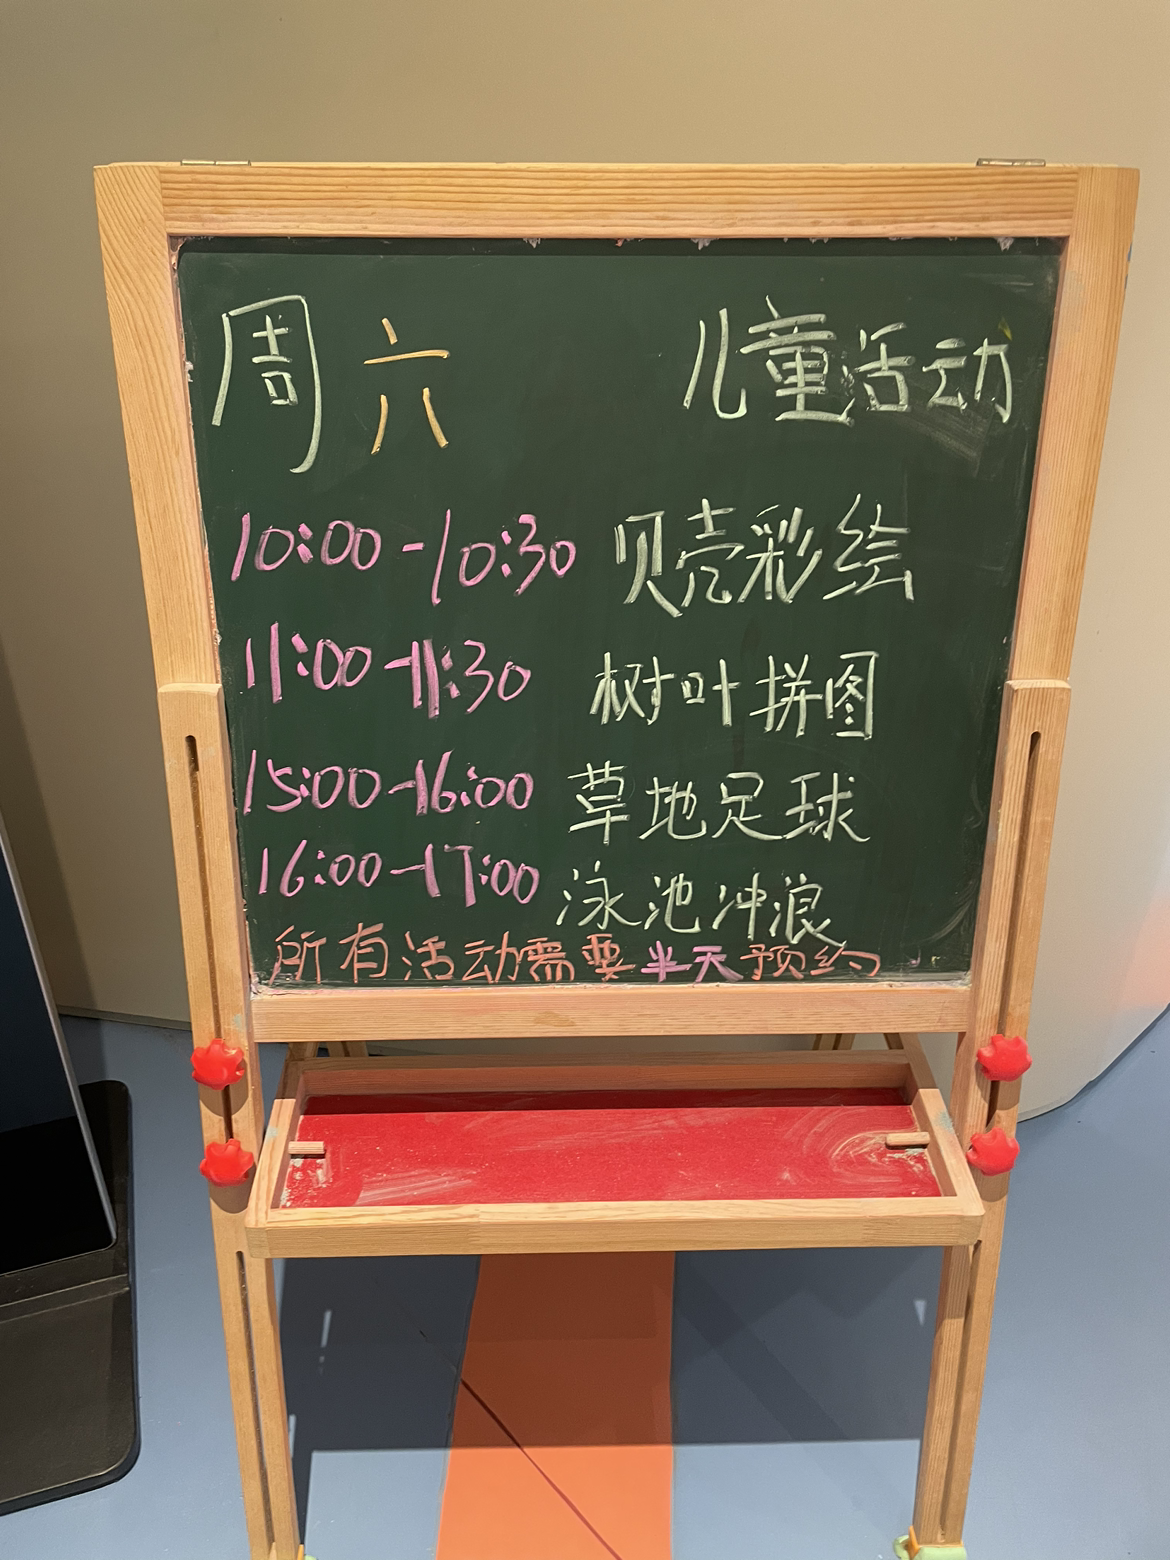 周六 儿童活动
10:00-10:30 贝壳彩绘
11:00-11:30 树叶拼图
15:00-16:00 草地足球
16:00-17:00 泳池冲浪
所有活动需要半天预约